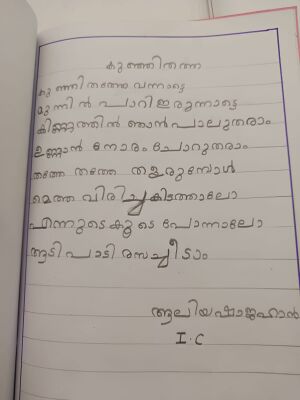 കുഞ്ഞിതത്ത
കുഞ്ഞിതത്തേ വന്നാട്ടെ
മുന്നിൽ പാറിഇരുന്നാട്ടെ
കിണ്ണത്തിൽ ഞാൻ പാലുതരാം
ഉണ്ണാൻ നേരം ചോറുതരാം
തത്തേ തത്തേ തളരുമ്പോൾ
മെത്ത വിരിച്ചുകിടത്താലോ
എന്നുടെകൂടെ പോന്നാലോ
ആടി പാടി രസച്ചീടാം
ആലിയഷാജഹാൻ
I.C